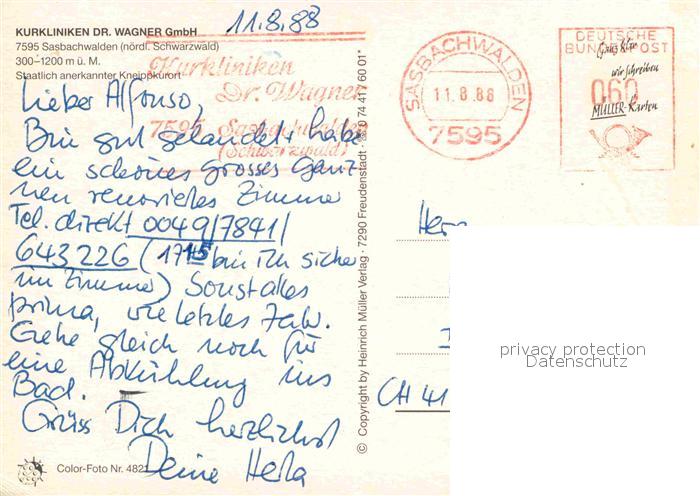 11.8.88
KURKLINIKEN DR. WAGNER GmbH
7595 Sasbachwalden (nördl. Schwarzwald)
300–1200 m ü. M.
Staatlich anerkannter Kneippkurort
Kurkliniken
Dr. Wagner
7595 Sasbachwalden
(Schwarzwald)
SASBACHWALDEN
11.8.88
7595
DEUTSCHE
BUNDESPOST
060
Grüß Gott
wir schreiben
MÜLLER-Karten
Lieber Alfonso,
Bin gut gelandet, habe
ein schönes grosses ganz
neu renoviertes Zimmer
Tel. direkt 0049/7841/
643226 (1745 bin ich sicher
im Zimmer) Sonst alles
prima, wie letztes Jahr.
Gehe gleich noch für
eine Abkühlung ins
Bad.
Grüss Dich herzlichst
Deine Herta
Color-Foto Nr. 4821
© Copyright by Heinrich Müller Verlag · 7290 Freudenstadt · ☎ 0 74 41 / 60 01*
Herr
CH 41
privacy protection
Datenschutz